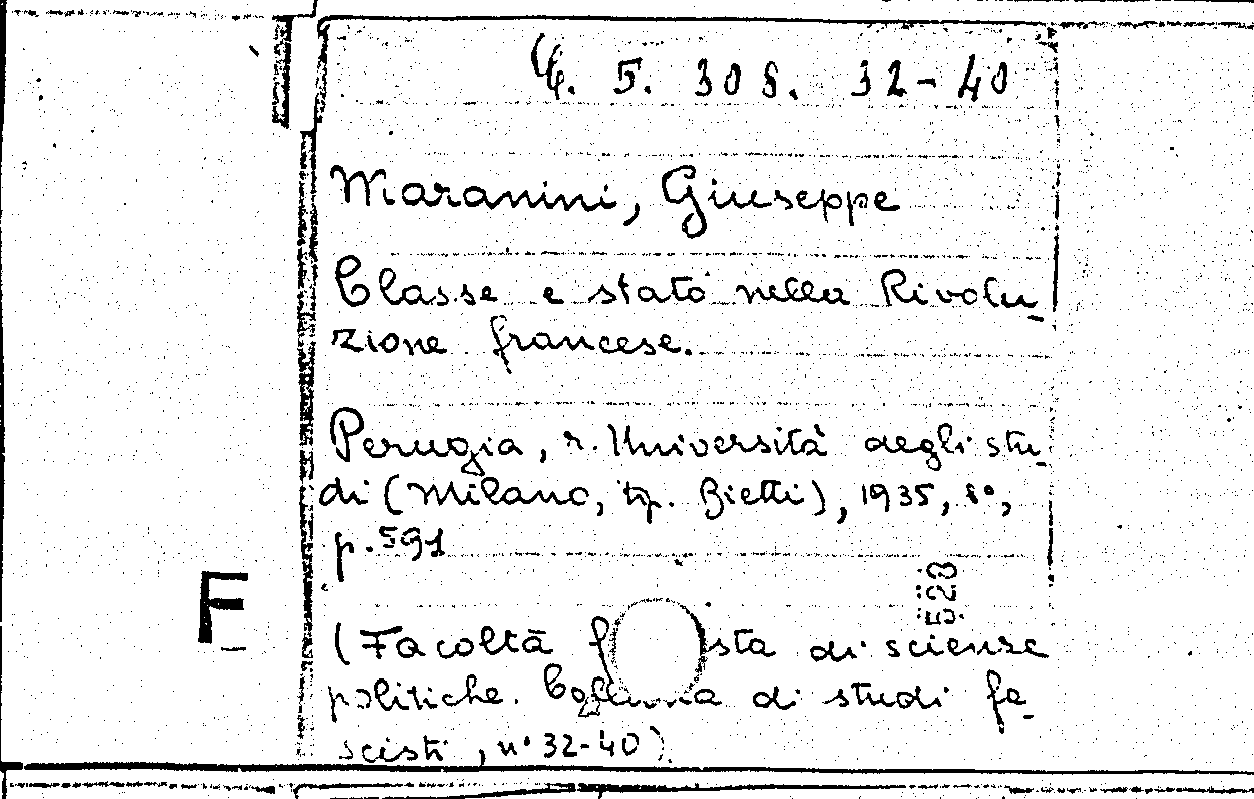 C. 5. 308. 32-40
Maranini, Giuseppe
Classe e stato nella Rivolu-
zione francese.
Perugia, r. Università degli stu-
di (Milano, tip. Bietti), 1935, 8°,
p. 591
528
F
(Facoltà f sta di scienze
politiche. Collana di studi fa-
scisti, n° 32-40)